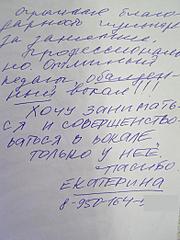 Огромное благо-
дарного
за занятие.
Профессиональ-
но отличный
педагог, обалден-
ный вокал!!!
Хочу занимать-
ся и совершенство-
ваться в вокале
только у неё.
Спасибо.
Екатерина
8-950-164-1